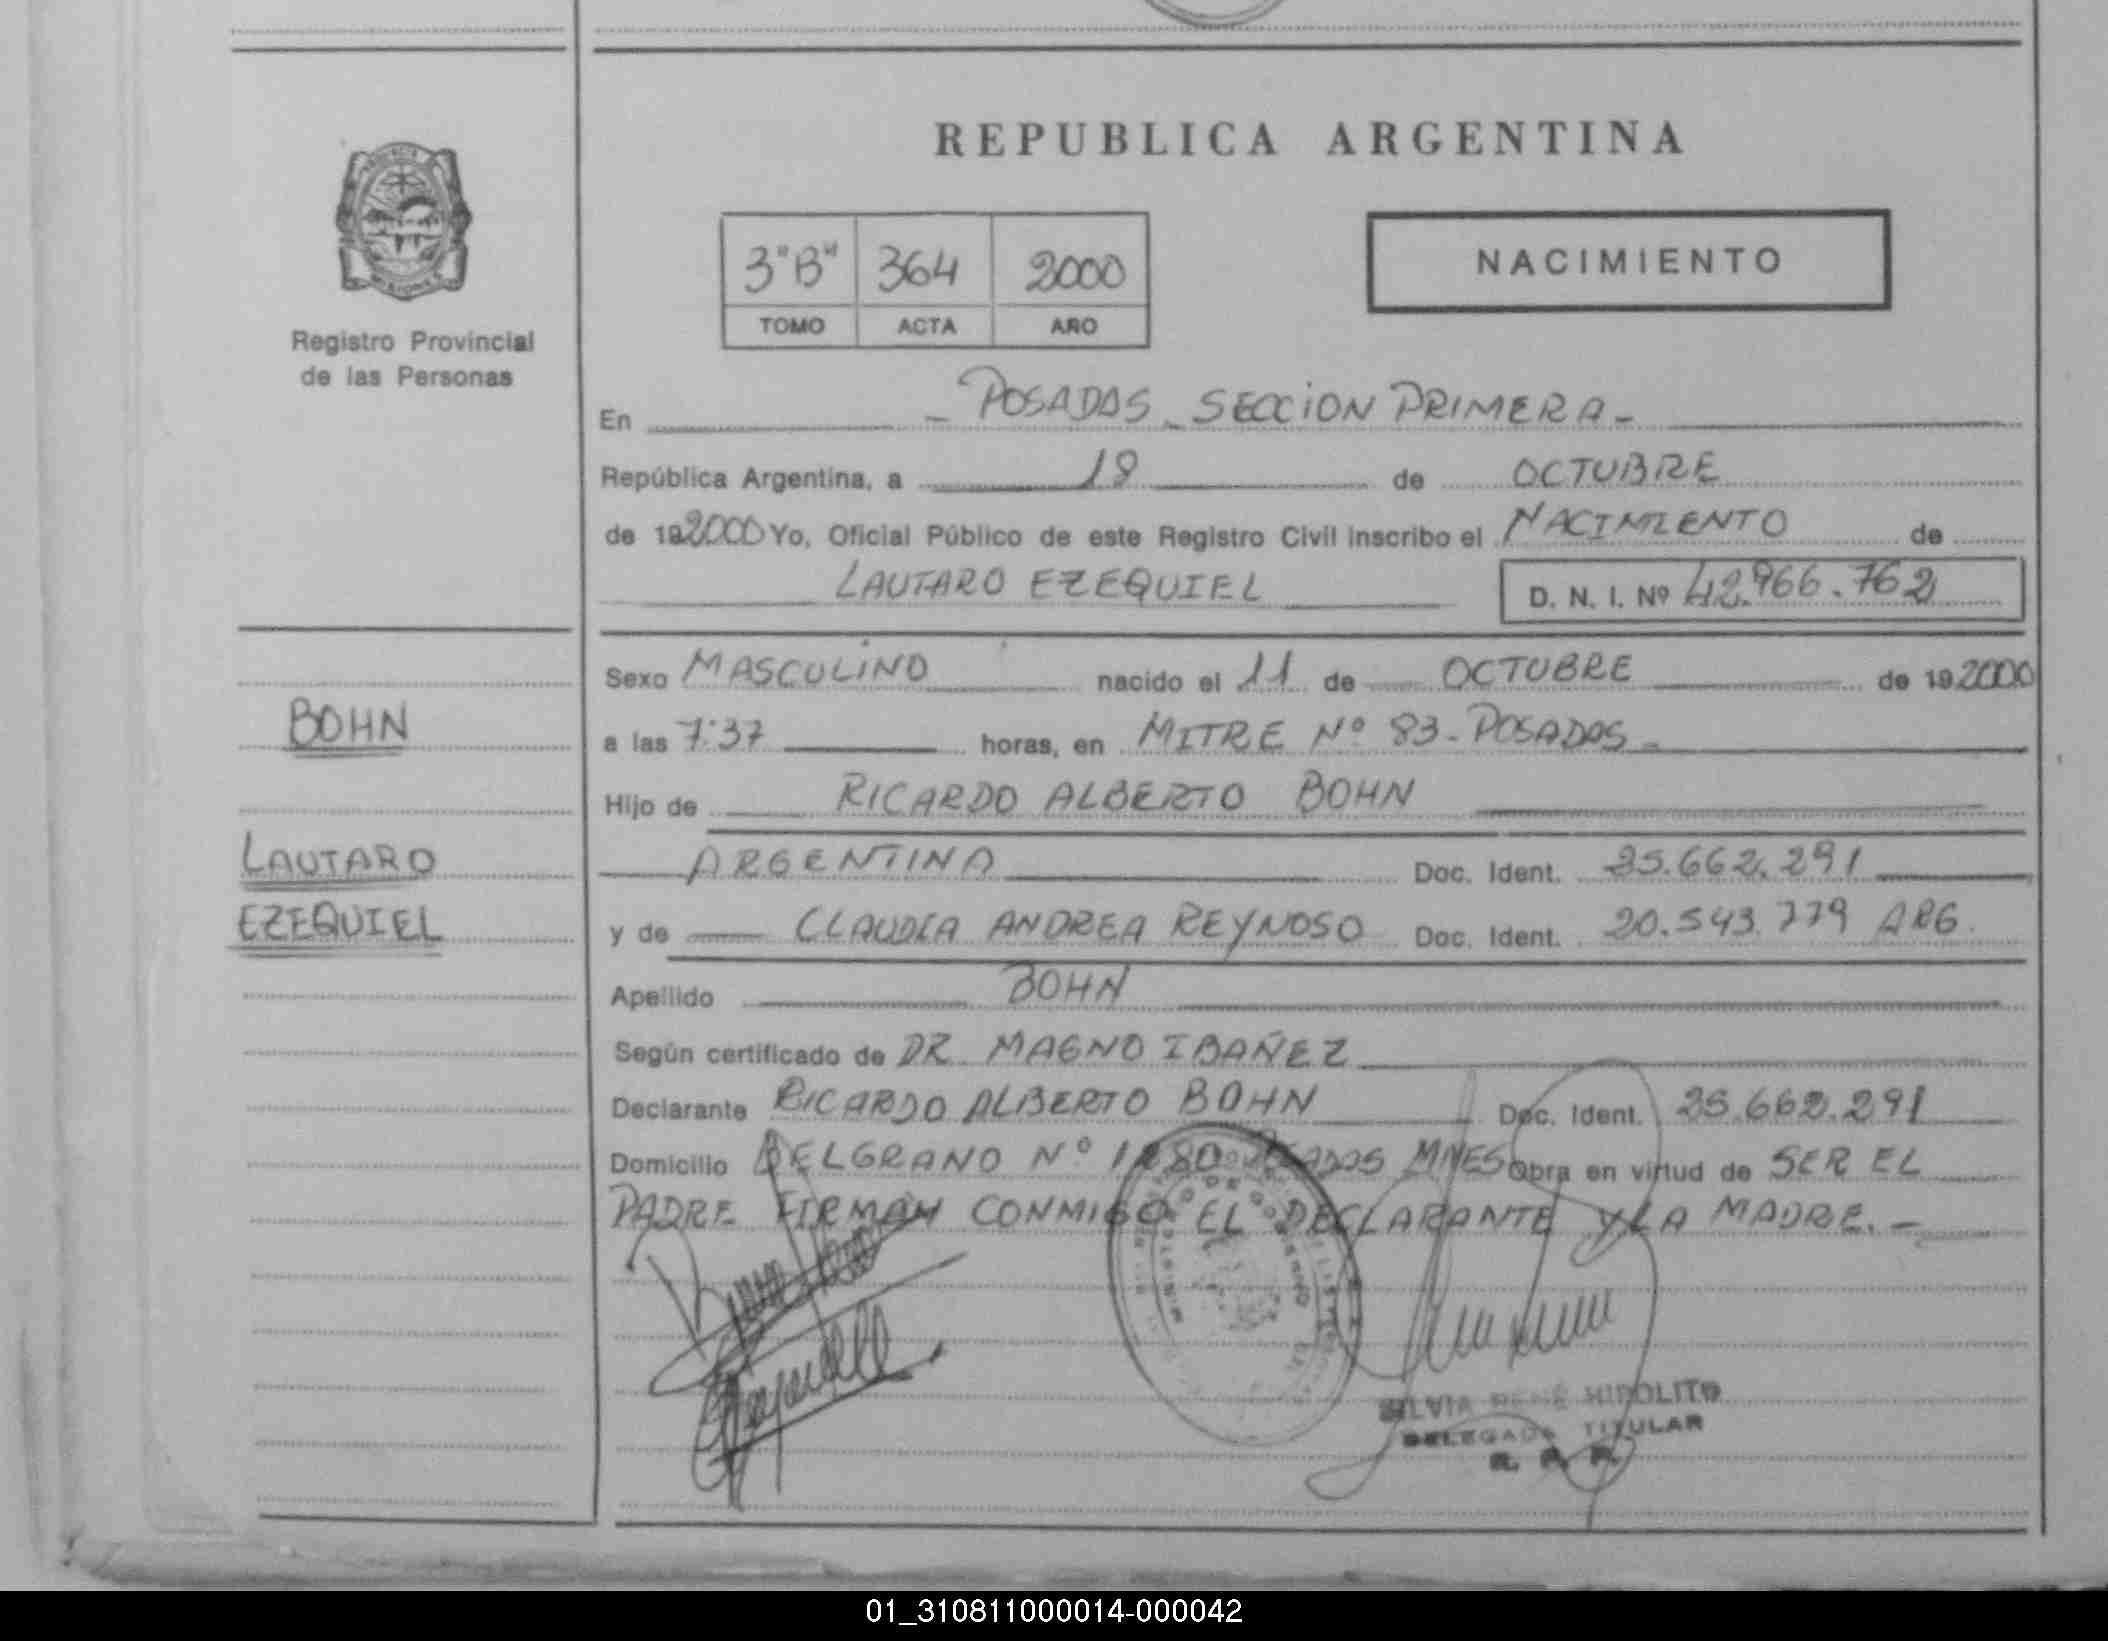 REPUBLICA ARGENTINA
3"B" 364 2000
TOMO ACTA AÑO
NACIMIENTO
Registro Provincial
de las Personas
En - POSADAS - SECCION PRIMERA -
República Argentina, a 18 de OCTUBRE
de 19 2000 Yo, Oficial Público de este Registro Civil inscribo el NACIMIENTO de
LAUTARO EZEQUIEL D. N. I. Nº 42.966.762
BOHN
LAUTARO
EZEQUIEL
Sexo MASCULINO nacido el 11 de OCTUBRE de 19 2000
a las 7:37 horas, en MITRE Nº 83 - POSADAS -
Hijo de RICARDO ALBERTO BOHN
ARGENTINA Doc. Ident. 25.662.291
y de CLAUDIA ANDREA REYNOSO Doc. Ident. 20.543.779 ARG.
Apellido BOHN
Según certificado de DR. MAGNO IBAÑEZ
Declarante RICARDO ALBERTO BOHN Doc. Ident. 25.662.291
Domicilio BELGRANO Nº POSADAS MNES Obra en virtud de SER EL
PADRE FIRMAN CONMIGO EL DECLARANTE Y LA MADRE. -
SILVIA RENÉ HIPOLITO
DELEGADA TITULAR
R. P. P.
01_310811000014-000042